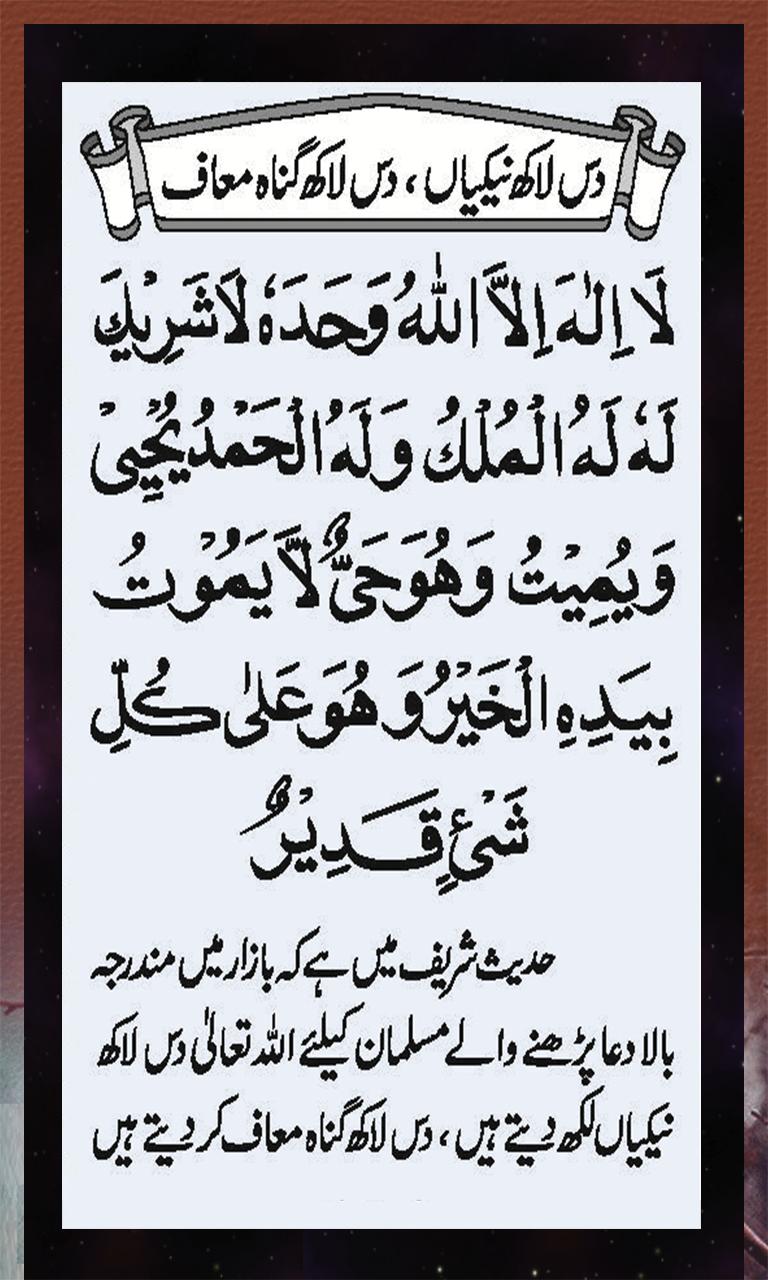 دس لاکھ نیکیاں ، دس لاکھ گناہ معاف
لَا اِلٰهَ اِلَّا اللّٰهُ وَحَدَهٗ لَا شَرِيْكَ
لَهٗ لَهُ الْمُلْكُ وَلَهُ الْحَمْدُ يُحْيِىْ
وَيُمِيْتُ وَهُوَ حَىٌّ لَّا يَمُوْتُ
بِيَدِهِ الْخَيْرُ وَهُوَ عَلٰى كُلِّ
شَىْءٍ قَدِيْرٌ
حدیث شریف میں ہے کہ بازار میں مندرجہ
بالا دعا پڑھنے والے مسلمان کیلئے اللہ تعالیٰ دس لاکھ
نیکیاں لکھ دیتے ہیں ، دس لاکھ گناہ معاف کر دیتے ہیں